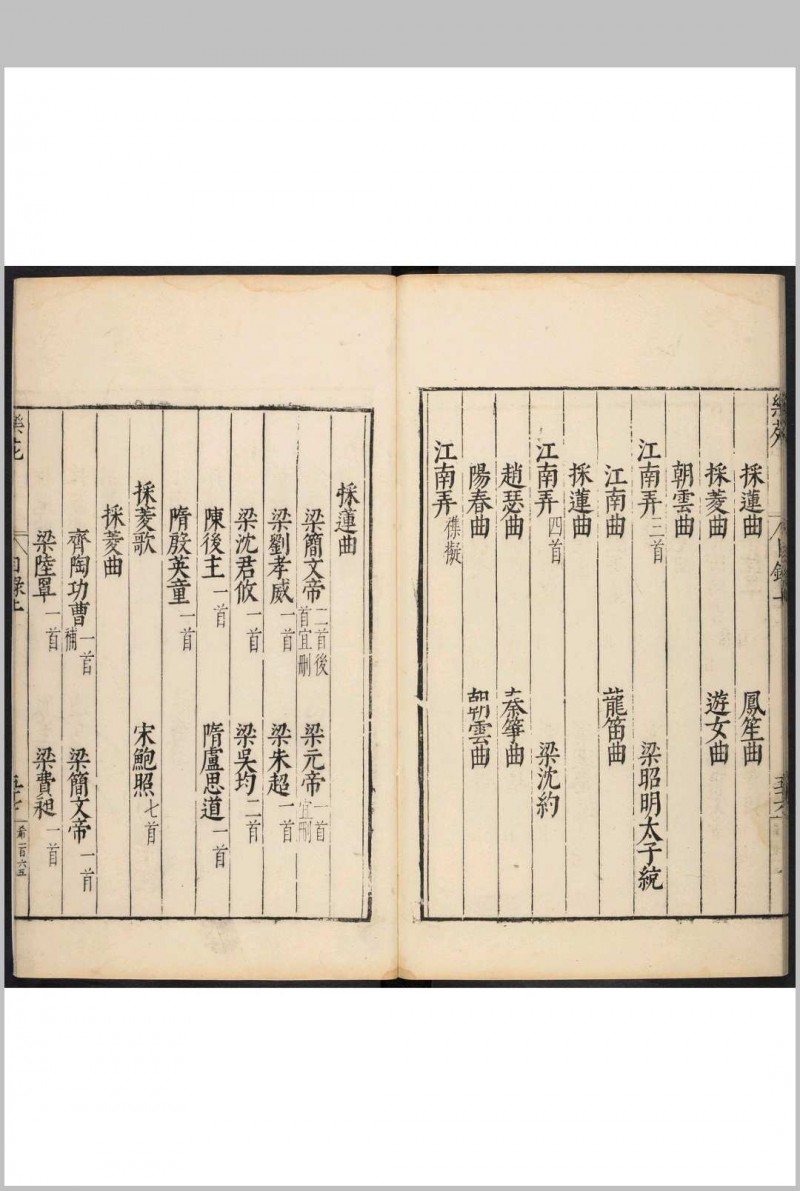 採蓮曲　鳳笙曲
採菱曲　遊女曲
朝雲曲
江南弄三首　梁昭明太子統
江南曲　龍笛曲
採蓮曲
江南弄四首　梁沈約
趙瑟曲　秦箏曲
陽春曲　朝雲曲
江南弄儗擬
採蓮曲
梁簡文帝二首後首宜刪　梁元帝一首宜刪
梁劉孝威一首　梁朱超一首
梁沈君攸一首　梁吳均二首
陳後主一首　隋盧思道一首
隋殷英童一首
採菱歌　宋鮑照七首
採菱曲
齊陶功曹一首補　梁簡文帝一首
梁陸罩一首　梁費昶一首
希一百六五